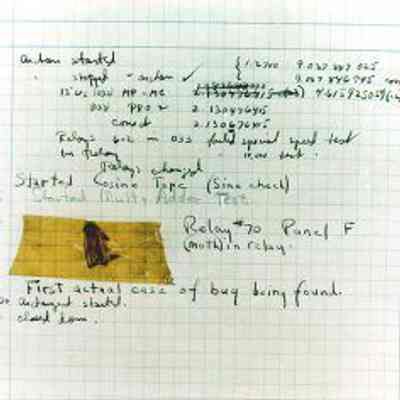 antan started { 1.2700 9.037 847 025
" stopped - antan ✓ 9.037 846 995
13" uc (032) MP - MC 4.615925059(-
033 PRO 2 2.130476415
correct 2.130676415
Relays 6-2 in 033 failed special speed test
in relay " test .
Relays changed
Started Cosine Tape (Sine check)
Started Mult+Adder Test.
Relay #70 Panel F
(moth) in relay.
First actual case of bug being found.
antangent started.
closed down.